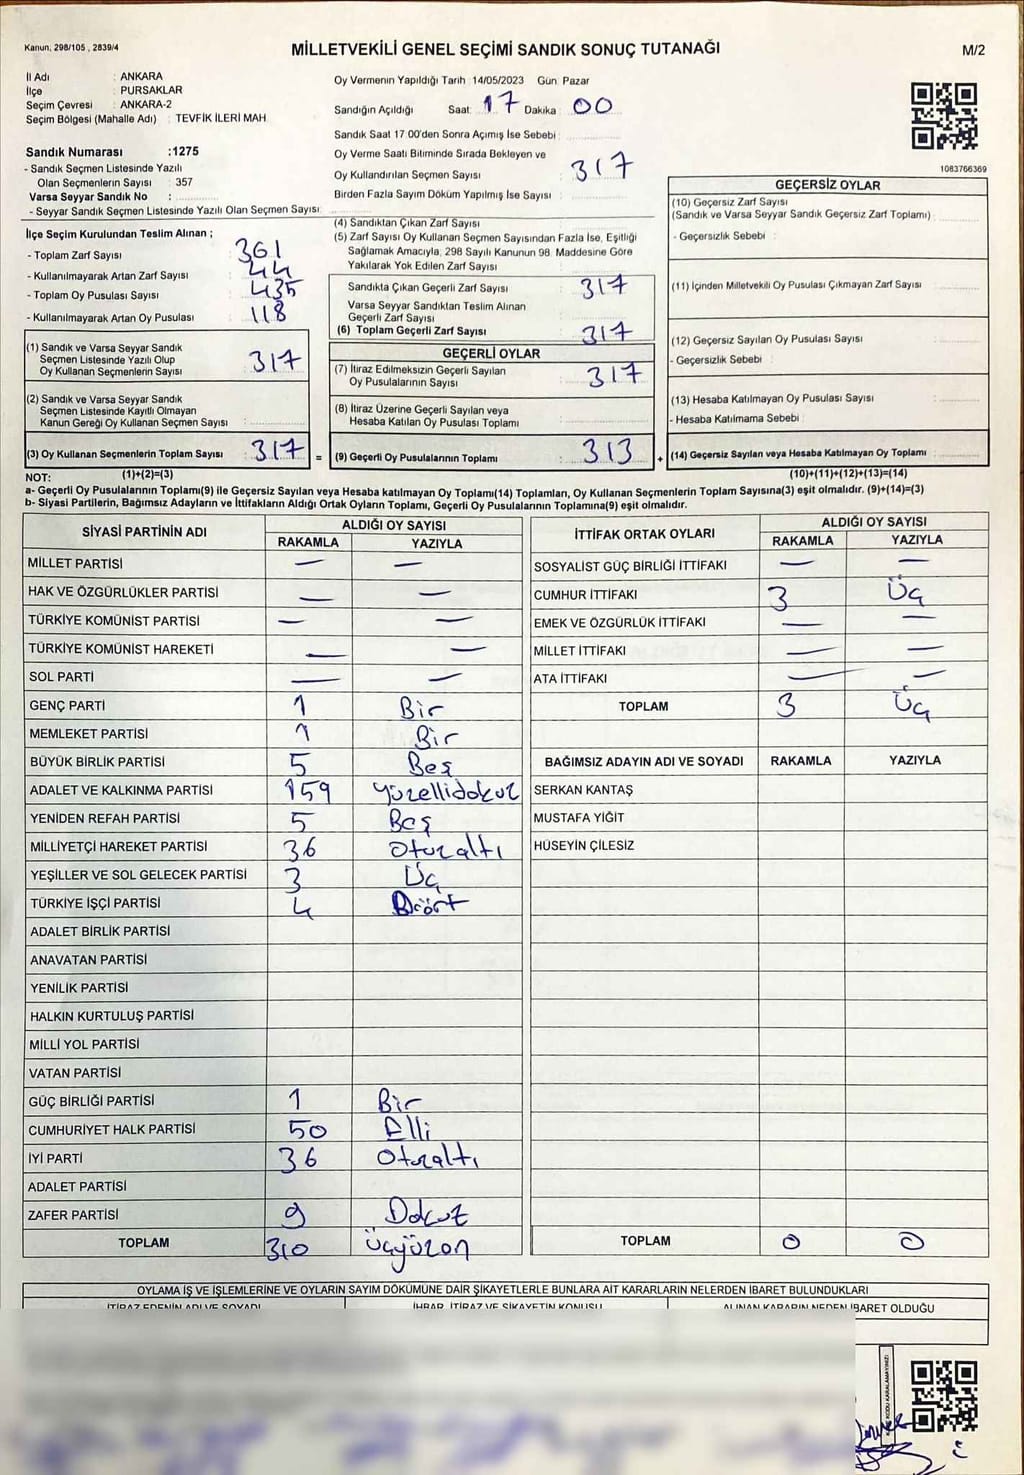 Kanun, 298/105 , 2839/4
MİLLETVEKİLİ GENEL SEÇİMİ SANDIK SONUÇ TUTANAĞI
M/2
İl Adı : ANKARA
İlçe : PURSAKLAR
Seçim Çevresi : ANKARA-2
Seçim Bölgesi (Mahalle Adı) : TEVFİK İLERİ MAH
Sandık Numarası :1275
- Sandık Seçmen Listesinde Yazılı
Olan Seçmenlerin Sayısı : 357
Varsa Seyyar Sandık No :
- Seyyar Sandık Seçmen Listesinde Yazılı Olan Seçmen Sayısı:
Oy Vermenin Yapıldığı Tarih :14/05/2023 Gün: Pazar
Sandığın Açıldığı Saat: 17 Dakika : 00
Sandık Saat 17:00'den Sonra Açımış İse Sebebi :
Oy Verme Saati Bitiminde Sırada Bekleyen ve
Oy Kullandırılan Seçmen Sayısı : 317
Birden Fazla Sayım Döküm Yapılmış İse Sayısı :
1083766369
İlçe Seçim Kurulundan Teslim Alınan ;
- Toplam Zarf Sayısı : 361
- Kullanılmayarak Artan Zarf Sayısı : 44
- Toplam Oy Pusulası Sayısı : 435
- Kullanılmayarak Artan Oy Pusulası : 118
(1) Sandık ve Varsa Seyyar Sandık
Seçmen Listesinde Yazılı Olup
Oy Kullanan Seçmenlerin Sayısı : 317
(2) Sandık ve Varsa Seyyar Sandık
Seçmen Listesinde Kayıtlı Olmayan
Kanun Gereği Oy Kullanan Seçmen Sayısı :
(3) Oy Kullanan Seçmenlerin Toplam Sayısı : 317 =
(4) Sandıktan Çıkan Zarf Sayısı :
(5) Zarf Sayısı Oy Kullanan Seçmen Sayısından Fazla İse, Eşitliği
Sağlamak Amacıyla, 298 Sayılı Kanunun 98. Maddesine Göre
Yakılarak Yok Edilen Zarf Sayısı :
Sandıkta Çıkan Geçerli Zarf Sayısı : 317
Varsa Seyyar Sandıktan Teslim Alınan
Geçerli Zarf Sayısı :
(6) Toplam Geçerli Zarf Sayısı : 317
GEÇERLİ OYLAR
(7) İtiraz Edilmeksizin Geçerli Sayılan
Oy Pusulalarının Sayısı : 317
(8) İtiraz Üzerine Geçerli Sayılan veya
Hesaba Katılan Oy Pusulası Toplamı :
(9) Geçerli Oy Pusulalarının Toplamı : 313 +
GEÇERSİZ OYLAR
(10) Geçersiz Zarf Sayısı
(Sandık ve Varsa Seyyar Sandık Geçersiz Zarf Toplamı) :
- Geçersizlik Sebebi :
(11) İçinden Milletvekili Oy Pusulası Çıkmayan Zarf Sayısı :
(12) Geçersiz Sayılan Oy Pusulası Sayısı :
- Geçersizlik Sebebi :
(13) Hesaba Katılmayan Oy Pusulası Sayısı :
- Hesaba Katılmama Sebebi :
(14) Geçersiz Sayılan veya Hesaba Katılmayan Oy Toplamı :
NOT: (1)+(2)=(3) (10)+(11)+(12)+(13)=(14)
a- Geçerli Oy Pusulalarının Toplamı(9) ile Geçersiz Sayılan veya Hesaba katılmayan Oy Toplamı(14) Toplamları, Oy Kullanan Seçmenlerin Toplam Sayısına(3) eşit olmalıdır. (9)+(14)=(3)
b- Siyasi Partilerin, Bağımsız Adayların ve İttifakların Aldığı Ortak Oyların Toplamı, Geçerli Oy Pusulalarının Toplamına(9) eşit olmalıdır.
SİYASİ PARTİNİN ADI ALDIĞI OY SAYISI
RAKAMLA YAZIYLA
MİLLET PARTİSİ — —
HAK VE ÖZGÜRLÜKLER PARTİSİ — —
TÜRKİYE KOMÜNİST PARTİSİ — —
TÜRKİYE KOMÜNİST HAREKETİ — —
SOL PARTİ — —
GENÇ PARTİ 1 Bir
MEMLEKET PARTİSİ 1 Bir
BÜYÜK BİRLİK PARTİSİ 5 Beş
ADALET VE KALKINMA PARTİSİ 159 Yüzellidokuz
YENİDEN REFAH PARTİSİ 5 Beş
MİLLİYETÇİ HAREKET PARTİSİ 36 Otuzaltı
YEŞİLLER VE SOL GELECEK PARTİSİ 3 Üç
TÜRKİYE İŞÇİ PARTİSİ 4 Dört
ADALET BİRLİK PARTİSİ
ANAVATAN PARTİSİ
YENİLİK PARTİSİ
HALKIN KURTULUŞ PARTİSİ
MİLLİ YOL PARTİSİ
VATAN PARTİSİ
GÜÇ BİRLİĞİ PARTİSİ 1 Bir
CUMHURİYET HALK PARTİSİ 50 Elli
İYİ PARTİ 36 Otuzaltı
ADALET PARTİSİ
ZAFER PARTİSİ 9 Dokuz
TOPLAM 310 Üçyüzon
İTTİFAK ORTAK OYLARI ALDIĞI OY SAYISI
RAKAMLA YAZIYLA
SOSYALİST GÜÇ BİRLİĞİ İTTİFAKI — —
CUMHUR İTTİFAKI 3 Üç
EMEK VE ÖZGÜRLÜK İTTİFAKI — —
MİLLET İTTİFAKI — —
ATA İTTİFAKI — —
TOPLAM 3 Üç
BAĞIMSIZ ADAYIN ADI VE SOYADI RAKAMLA YAZIYLA
SERKAN KANTAŞ
MUSTAFA YİĞİT
HÜSEYİN ÇİLESİZ
TOPLAM 0 0
OYLAMA İŞ VE İŞLEMLERİNE VE OYLARIN SAYIM DÖKÜMÜNE DAİR ŞİKAYETLERLE BUNLARA AİT KARARLARIN NELERDEN İBARET BULUNDUKLARI
İTİRAZ EDENİN ADI VE SOYADI İHBAR, İTİRAZ VE ŞİKAYETİN KONUSU ALINAN KARARIN NEDEN İBARET OLDUĞU